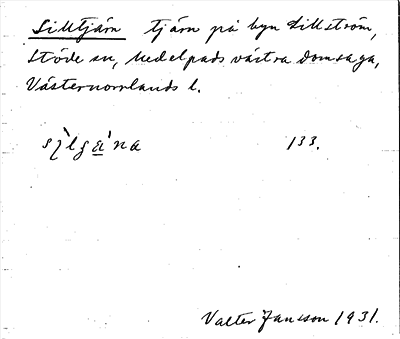 Silltjärn tjärn på byn Lillström,
Stöde sn, Medelpads västra domsaga,
Västernorrlands l.
133.
Valter Jansson 1931.